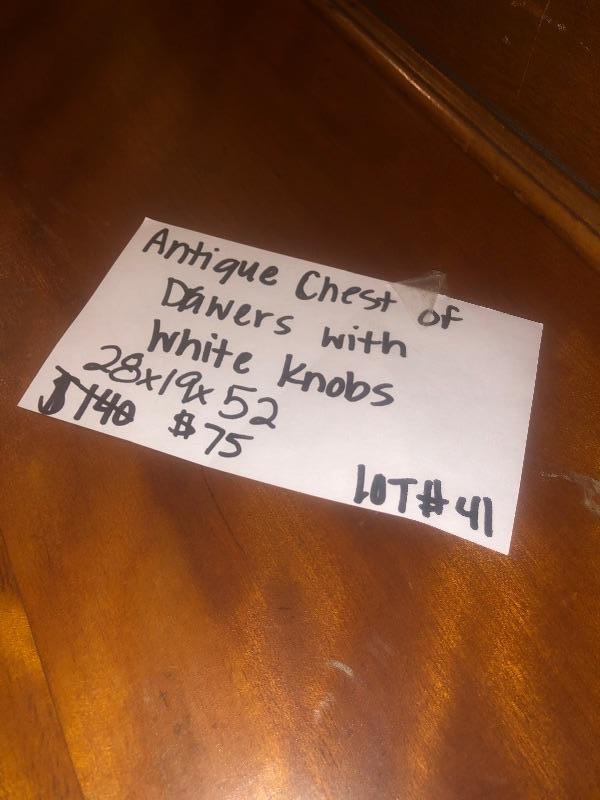 Antique Chest of
Dawers with
White Knobs
28x19x52
$140 $75
LOT# 41